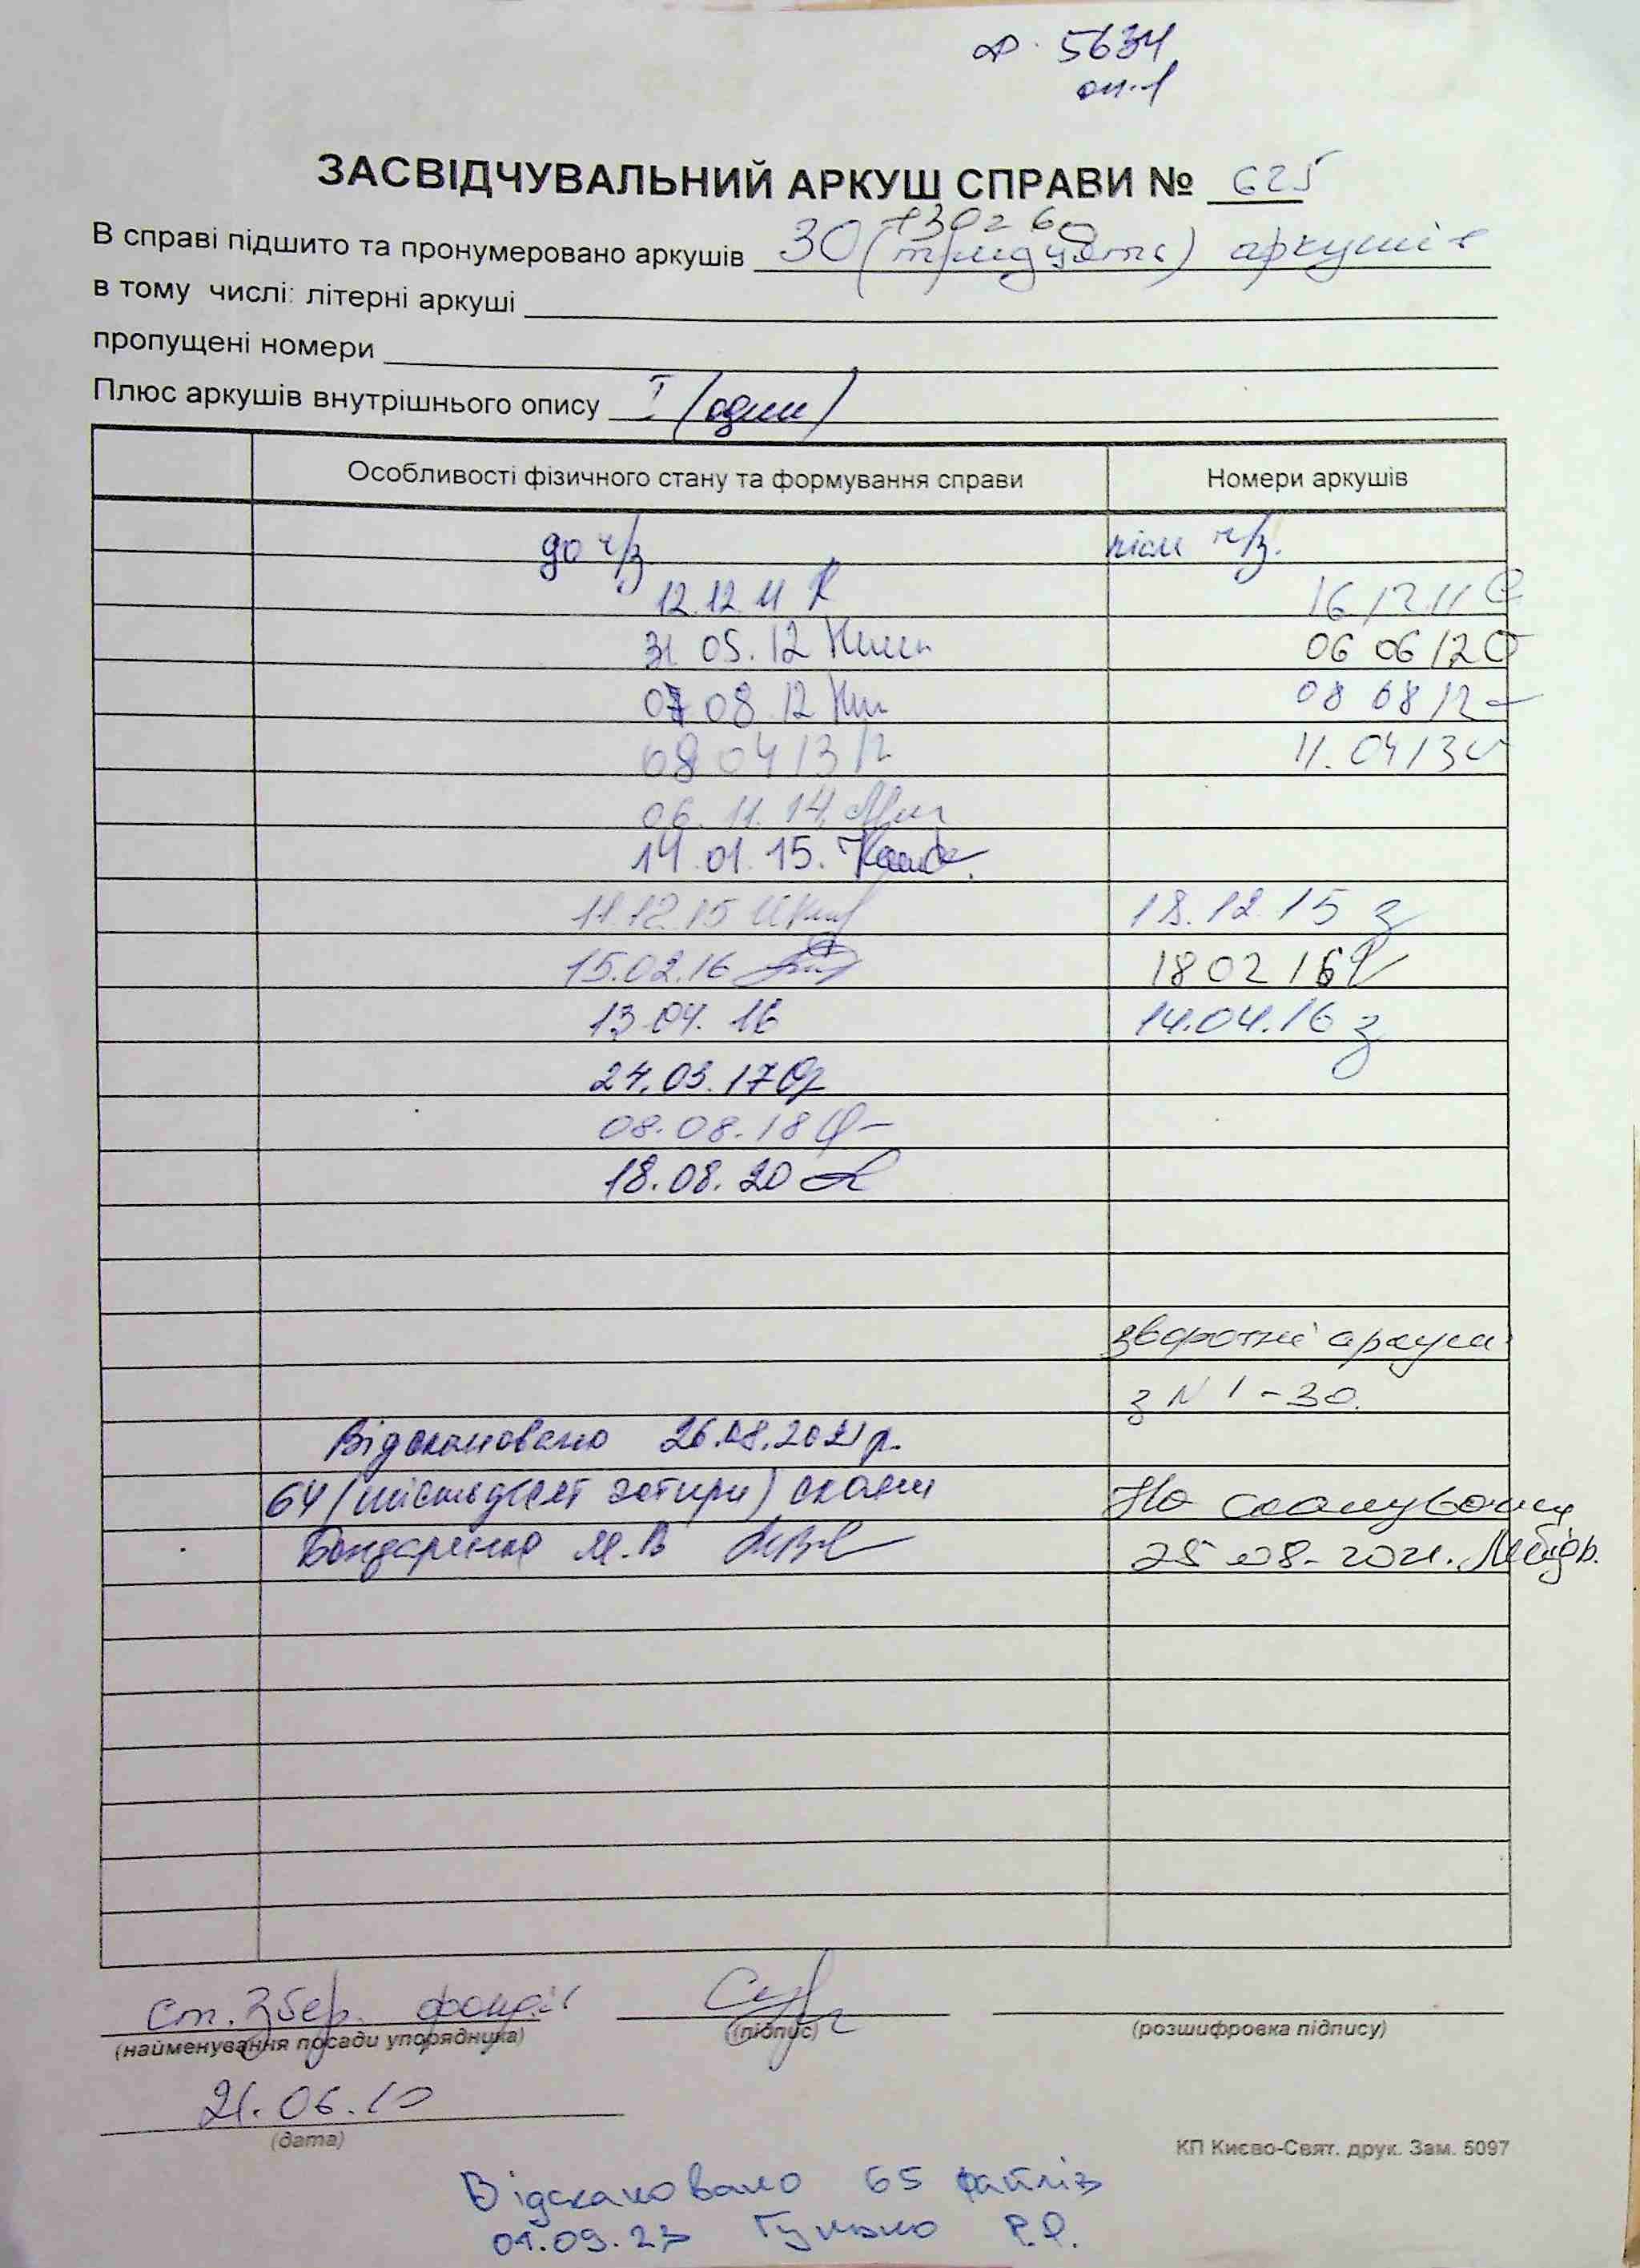 ф. 5634
оп. 1
ЗАСВІДЧУВАЛЬНИЙ АРКУШ СПРАВИ № 625
+30 = 60
В справі підшито та пронумеровано аркушів 30 (тридцять) аркушів
в тому числі: літерні аркуші
пропущені номери
Плюс аркушів внутрішнього опису I (один)
Особливості фізичного стану та формування справи Номери аркушів
до ч/з після ч/з.
12.12.11 16.12.11
31.05.12 06 06 12
07 08 12 08 08 12
08 04 13 11.04 13
06.11.14
14.01.15.
11.12.15 18.12.15
15.02.16 18 02 16
13.04.16 14.04.16
24.03.17
08.08.18
18.08.20
зворотні аркуші
з N 1-30.
Відскановано 26.08.2021 р.
64 (шістьдесят чотири) скани На сканування
Бондаренко М.В 25.08.2021.
ст. збер. фондів
(найменування посади упорядника) (підпис) (розшифровка підпису)
21.06.10
(дата)
КП Києво-Свят. друк. Зам. 5097
Відскановано 65 файлів
01.09.23 Гунько Р.Р.